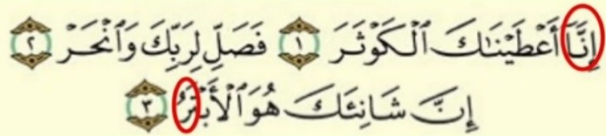 إِنَّا أَعْطَيْنَٰكَ ٱلْكَوْثَرَ ١ فَصَلِّ لِرَبِّكَ وَٱنْحَرْ ٢
إِنَّ شَانِئَكَ هُوَ ٱلْأَبْتَرُ ٣